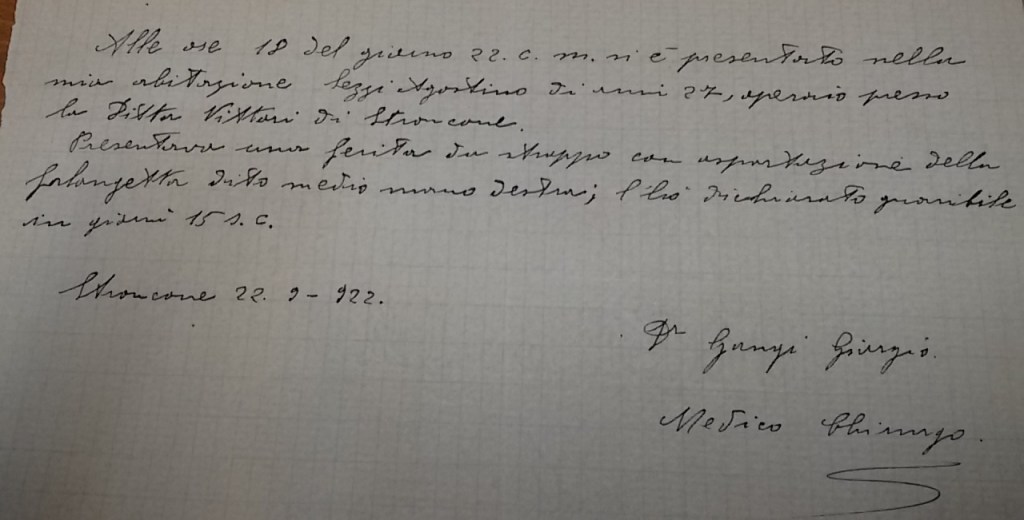 Alle ore 18 del giorno 22. c. m. si è presentato nella
mia abitazione Lezzi Agostino di anni 27, operaio presso
la Ditta Vittori di Stroncone.
Presentava una ferita da strappo con asportazione della
falangetta dito medio mano destra; l'ho dichiarato guaribile
in giorni 15 s. c.
Stroncone 22. 9 - 922.
Dr Gangi Giorgio.
Medico Chirurgo.